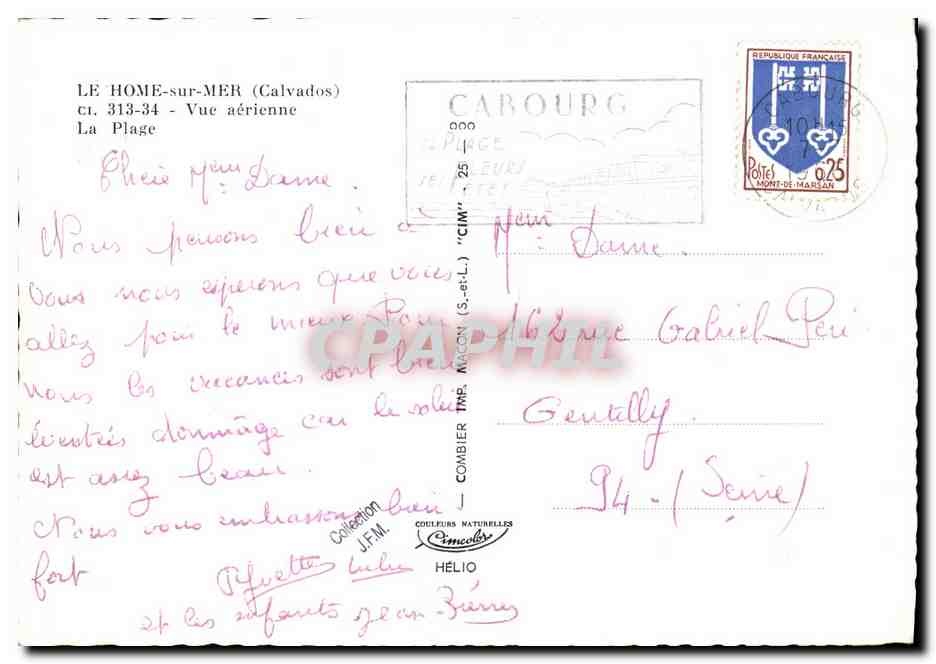 LE HOME-sur-MER (Calvados)
CI. 313-34 - Vue aérienne
La Plage
CABOURG
SA PLAGE
SES FLEURS
ÉTÉ
REPUBLIQUE FRANÇAISE
POSTES 0,25
MONT-DE-MARSAN
CABOURG
10H15
7
CALVADOS
Chère Mem Dame.
Nous pensons bien à
vous nous esperons que vous
allez pour le mieux Pour
nous les vacances sont bien
dommage car le soleil
est assez beau.
Nous vous embrassons bien
fort
Yvette Lulu
et les enfants Jean-Pierre
Mem Dame.
162 rue Gabriel Peri
Gentilly.
94 - (Seine)
COMBIER IMP. MACON (S.-et-L.) "CIM" 25
CPAPHIL
Collection
J.F.M.
COULEURS NATURELLES
Cimcolor
HÉLIO